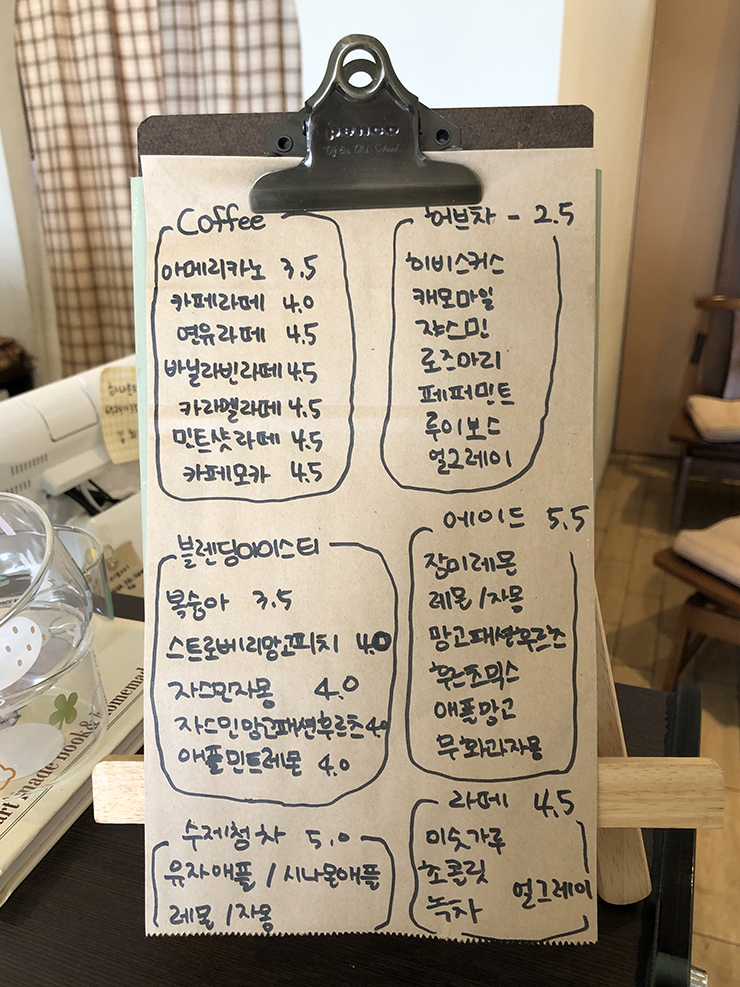 penco
Coffee
아메리카노 3.5
카페라떼 4.0
연유라떼 4.5
바닐라빈라떼 4.5
카라멜라떼 4.5
민트샷라떼 4.5
카페모카 4.5
허브차 - 2.5
히비스커스
캐모마일
쟈스민
로즈마리
페퍼민트
루이보스
얼그레이
블렌딩아이스티
복숭아 3.5
스트로베리망고피치 4.0
자스민자몽 4.0
자스민망고패션후르츠 4.0
애플민트레몬 4.0
에이드 5.5
장미레몬
레몬/자몽
망고패션후르츠
애플망고
무화과자몽
수제청차 5.0
유자애플 / 시나몬애플
레몬 / 자몽
라떼 4.5
미숫가루
초콜릿
녹차 얼그레이